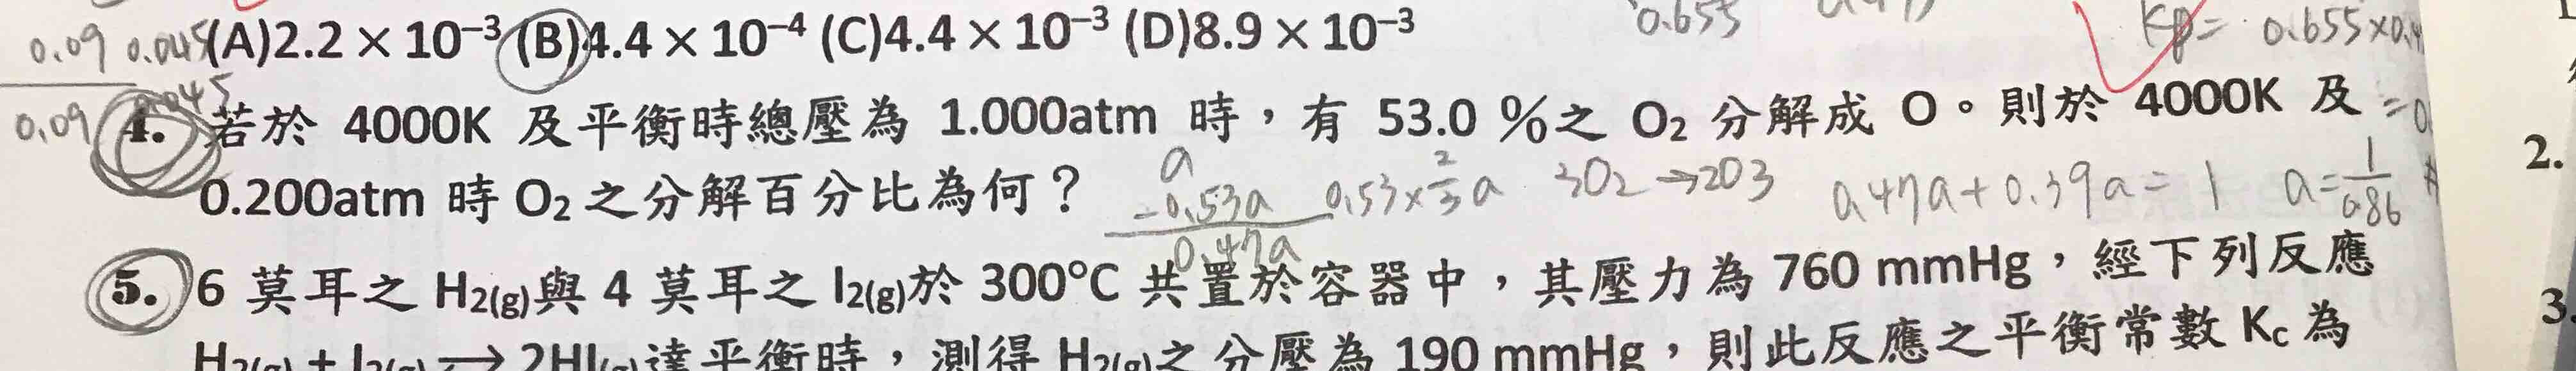 0.09 0.045 (A)2.2 × 10⁻³ (B)4.4 × 10⁻⁴ (C)4.4 × 10⁻³ (D)8.9 × 10⁻³ 0.655
Kp = 0.655×0.4
0.09 0.045
4. 若於 4000K 及平衡時總壓為 1.000atm 時，有 53.0 %之 O₂ 分解成 O。則於 4000K 及
0.200atm 時 O₂ 之分解百分比為何？
a
-0.53a 0.53×2/3 a 3O2→2O3 0.47a+0.39a=1 a=1/0.86
0.47a
5. 6 莫耳之 H₂(g)與 4 莫耳之 I₂(g)於 300°C 共置於容器中，其壓力為 760 mmHg，經下列反應
H₂(g) + I₂(g) ⟶ 2HI(g)達平衡時，測得 H₂(g)之分壓為 190 mmHg，則此反應之平衡常數 Kc 為
2.
3.